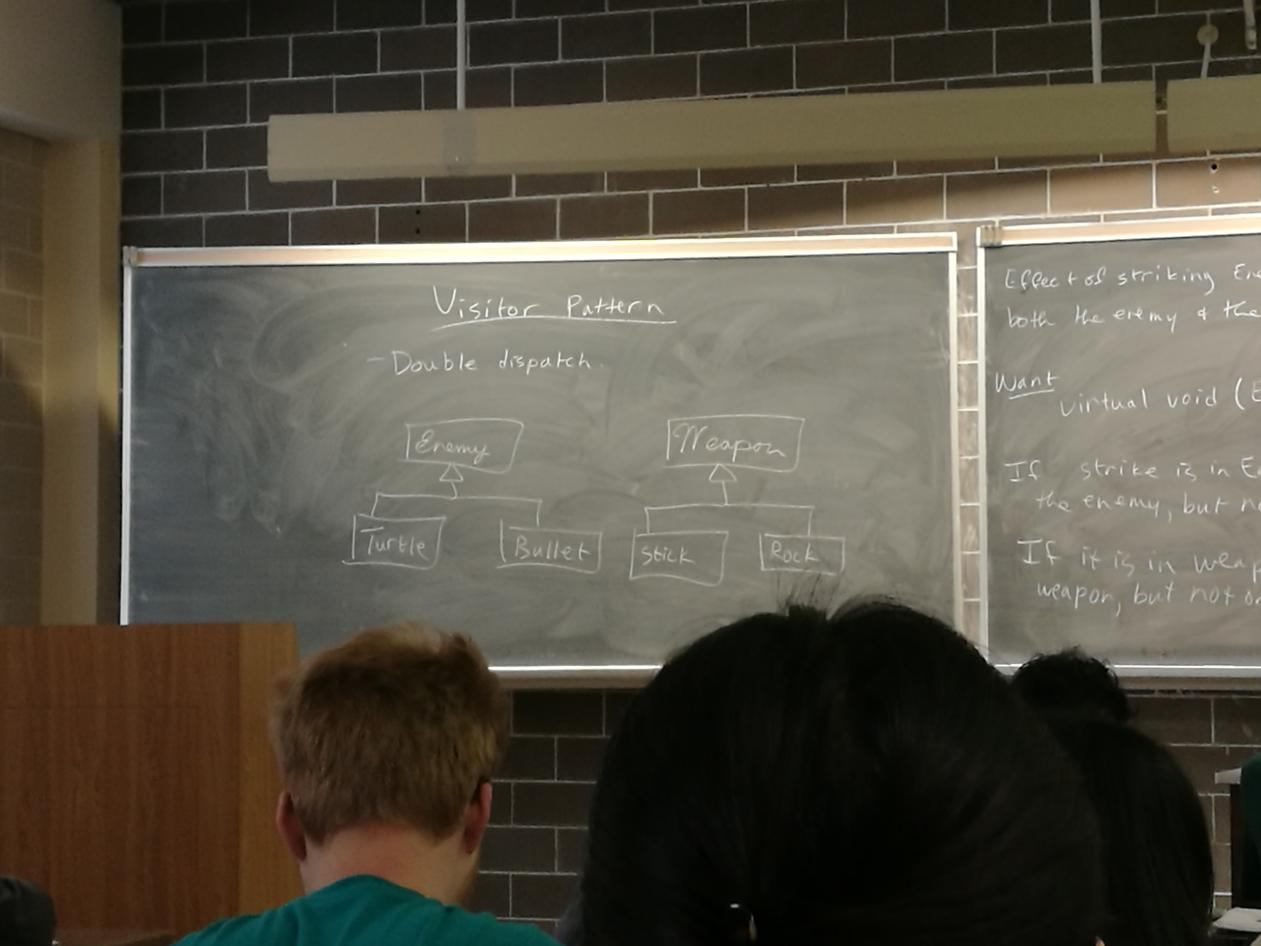 Visitor Pattern
- Double dispatch.
Enemy
Weapon
Turtle
Bullet
Stick
Rock
Effect of striking
both the enemy & the
Want
virtual void (
If strike is in
the enemy, but
If it is in
weapon, but not